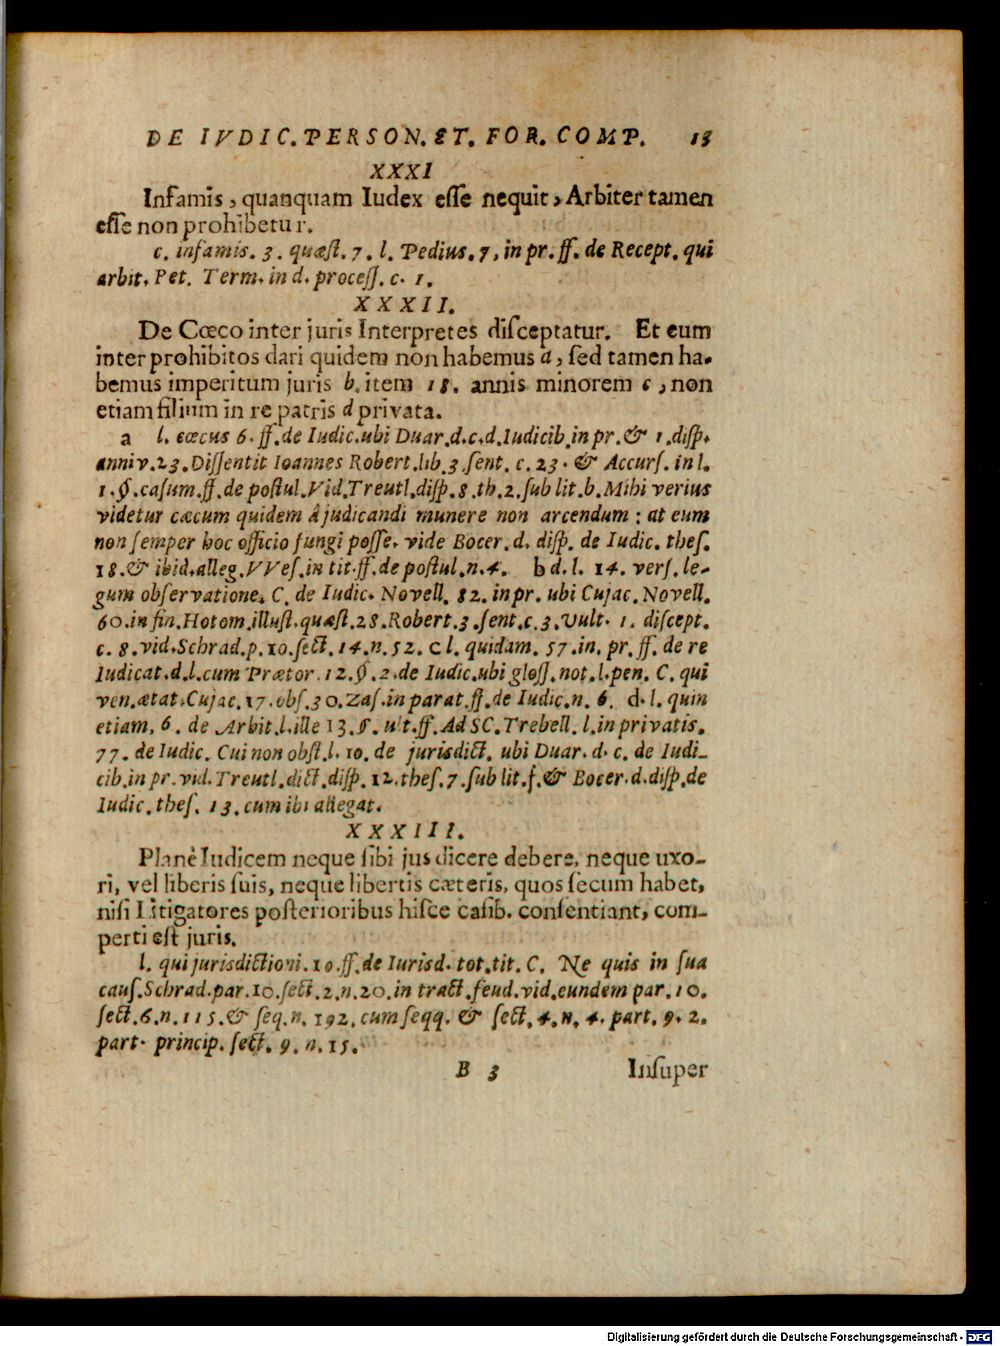 DE IVDIC. PERSON. ET. FOR. COMP. 13
XXXI
Infamis, quanquam Iudex eſſe nequit, Arbiter tamen
eſſe non prohibetur.
c. infamis. 3. quæſt. 7. l. Pedius. 7, in pr. ff. de Recept. qui
arbit. Pet. Term. in d. proceſſ. c. 1.
XXXII.
De Cœco inter juris Interpretes diſceptatur. Et eum
inter prohibitos dari quidem non habemus a, ſed tamen ha-
bemus imperitum juris b, item 18. annis minorem c, non
etiam filium in re patris d privata.
a l. cœcus 6. ff. de Iudic. ubi Duar. d. c. d. Iudicib. in pr. & 1. diſp.
anniv. 23. Diſſentit Ioannes Robert. lib. 3. ſent. c. 23. & Accurſ. in l.
1. §. caſum. ff. de poſtul. Vid. Treutl. diſp. 8. th. 2. ſub lit. b. Mihi verius
videtur cæcum quidem à judicandi munere non arcendum: at eum
non ſemper hoc officio fungi poſſe. vide Bocer. d. diſp. de Iudic. theſ.
18. & ibid. alleg. VVeſ. in tit. ff. de poſtul. n. 4. b d. l. 14. verſ. le-
gum obſervatione. C. de Iudic. Novell. 82. in pr. ubi Cujac. Novell.
60. in fin. Hotom. illuſt. quæſt. 28. Robert. 3. ſent. c. 3. Vult. 1. diſcept.
c. 8. vid. Schrad. p. 10. ſect. 14. n. 52. c l. quidam. 57. in. pr. ff. de re
Iudicat. d. l. cum Prætor. 12. §. 2. de Iudic. ubi gloſſ. not. l. pen. C. qui
ven. ætat. Cujac. 17. obſ. 30. Zaſ. in parat. ff. de Iudic. n. 6. d. l. quin
etiam, 6. de Arbit. l. ille 13. §. ult. ff. Ad SC. Trebell. l. in privatis.
77. de Iudic. Cui non obſt. l. 10. de jurisdict. ubi Duar. d. c. de Iudi-
cib. in pr. vid. Treutl. dict. diſp. 12. theſ. 7. ſub lit. f. & Bocer. d. diſp. de
Iudic. theſ. 13. cum ibi allegat.
XXXIII.
Planè Iudicem neque ſibi jus dicere debere, neque uxo-
ri, vel liberis ſuis, neque libertis cæteris, quos ſecum habet,
niſi Litigatores poſterioribus hiſce caſib. conſentiant, com-
perti eſt juris.
l. qui jurisdictioni. 10. ff. de Iurisd. tot. tit. C. Ne quis in ſua
cauſ. Schrad. par. 10. ſect. 2. n. 20. in tract. feud. vid. eundem par. 10.
ſect. 6. n. 115. & ſeq. n. 192. cum ſeqq. & ſect. 4. n. 4. part. 9. 2.
part. princip. ſect. 9. n. 15.
B 3 Inſuper
Digitalisierung gefördert durch die Deutsche Forschungsgemeinschaft - DFG